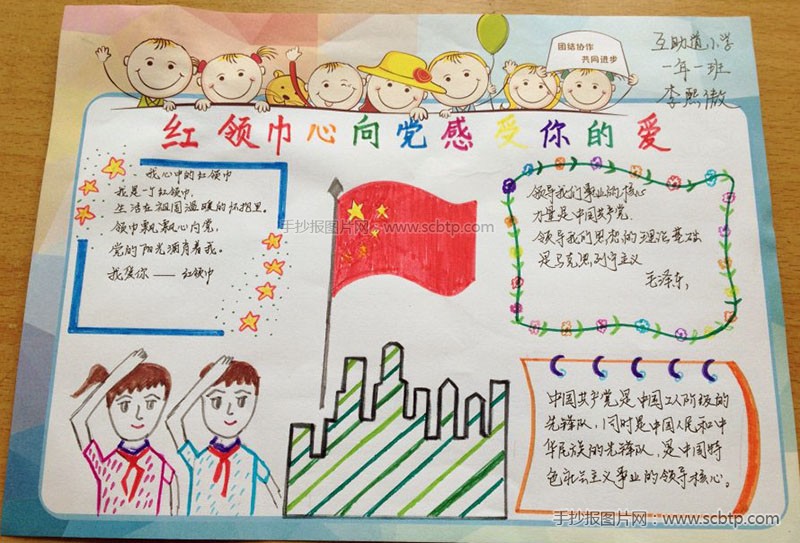 团结协作
共同进步
互助道小学
一年一班
李熙傲
红领巾心向党感受你的爱
我心中的红领巾
我是一个红领巾,
生活在祖国温暖的怀抱里。
领巾飘飘心向党,
党的阳光滴育着我。
我爱你——红领巾
领导我们事业的核心
力量是中国共产党,
领导我们思想的理论基础
是马克思列宁主义
毛泽东,
手抄报图片网:www.scbtp.com
中国共产党是中国工人阶级的
先锋队,同时是中国人民和中
华民族的先锋队,是中国特
色社会主义事业的领导核心。
手抄报图片网:www.scbtp.com